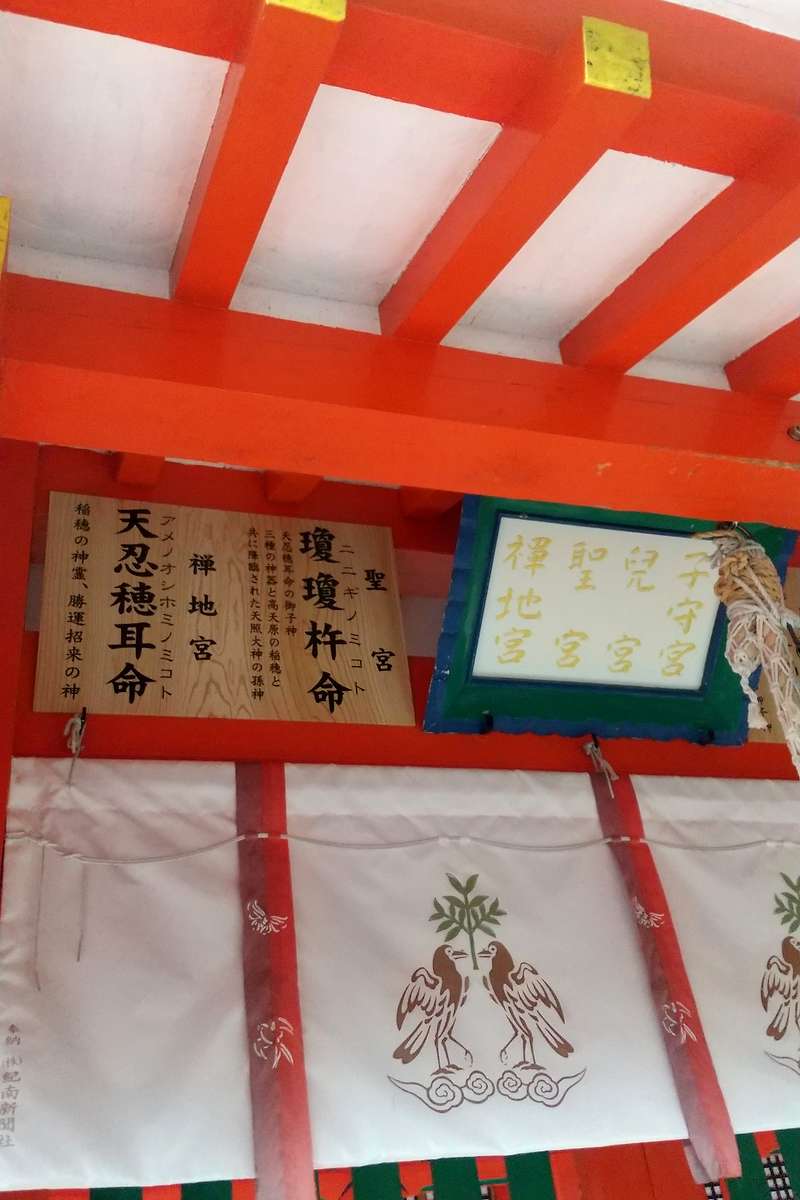 子守宮
兒宮
聖宮
禪地宮
聖宮
ニニギノミコト
瓊瓊杵命
天忍穂耳命の御子神
三種の神器と高天原の稲穂と
共に降臨された天照大神の孫神
禅地宮
アメノオシホミノミコト
天忍穂耳命
稲穂の神霊、勝運招来の神
奉納
(株)紀南新聞社